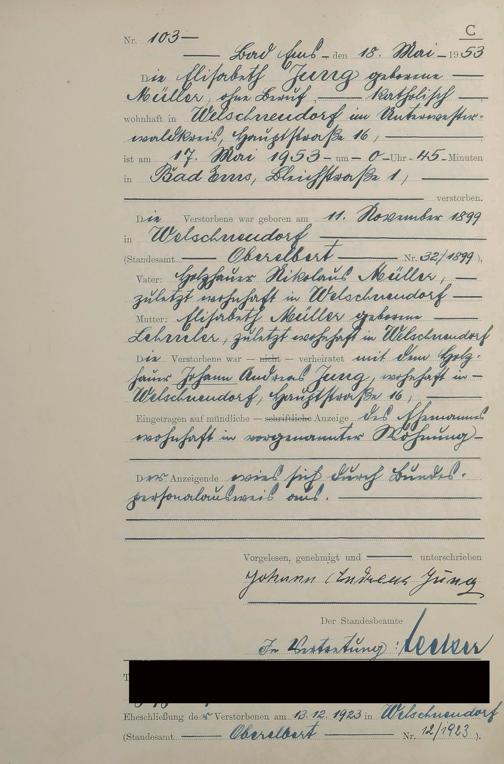 C
Nr. 103
Bad Ems, den 18. Mai 1953
Die Elisabeth Jung geborene
Müller, ohne Beruf, katholisch
wohnhaft in Welschneudorf im Unterwester-
waldkreis, Hauptstraße 16,
ist am 17. Mai 1953 um 0 Uhr 45 Minuten
in Bad Ems, Bleichstraße 1,
verstorben.
Die Verstorbene war geboren am 11. November 1899
in Welschneudorf
(Standesamt Oberelbert Nr. 32/1899),
Vater: Holzhauer Nikolaus Müller,
zuletzt wohnhaft in Welschneudorf
Mutter: Elisabeth Müller geborene
zuletzt wohnhaft in Welschneudorf
Die Verstorbene war — nicht — verheiratet mit dem Holz-
hauer Johann Andreas Jung, wohnhaft in
Welschneudorf, Hauptstraße 16,
Eingetragen auf mündliche — schriftliche Anzeige des Ehemannes
wohnhaft in vorgenannter Wohnung
Der Anzeigende wies sich durch Bundes-
personalausweis aus.
Vorgelesen, genehmigt und unterschrieben
Johann Andreas Jung
Der Standesbeamte
In Vertretung:
Eheschließung der Verstorbenen am 13.12.1923 in Welschneudorf
(Standesamt Oberelbert Nr. 12/1923).